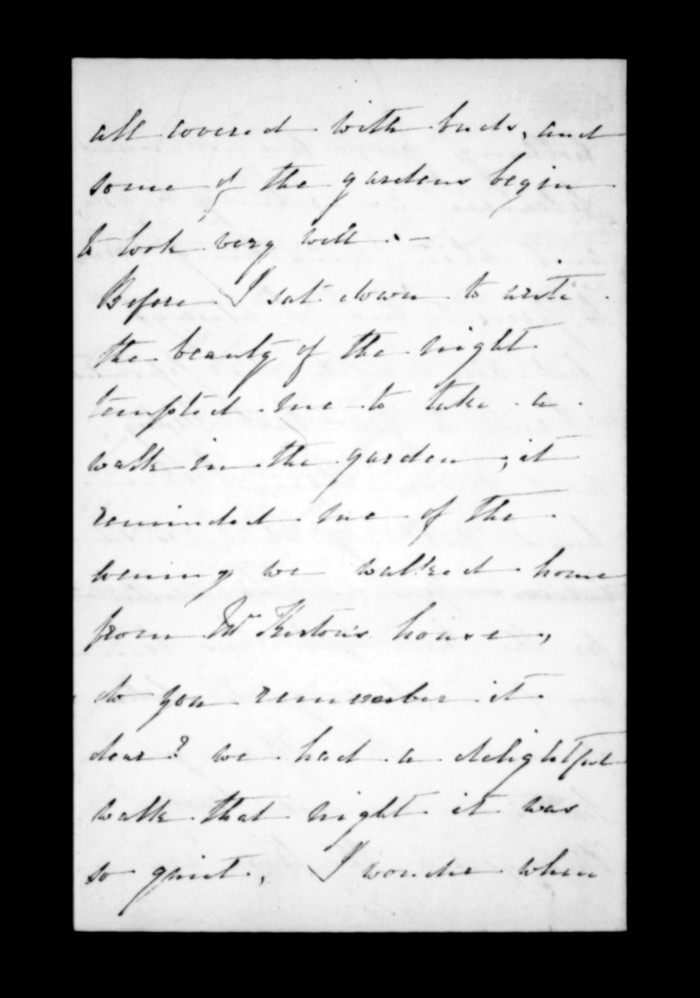 all covered with buds, and
some of the gardens begin
to look very well. –
Before I sat down to write
the beauty of the night
tempted me to take a
walk in the garden, it
reminded me of the
evening we walked home
from Mr house,
do you remember it
dear? we had a delightful
walk that night it was
so quiet. I wonder when